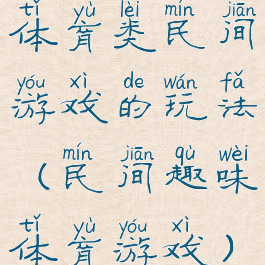 tǐ yù lèi mín jiān
体育类民间
yóu xì de wán fǎ
游戏的玩法
mín jiān qù wèi
（民间趣味
tǐ yù yóu xì
体育游戏）